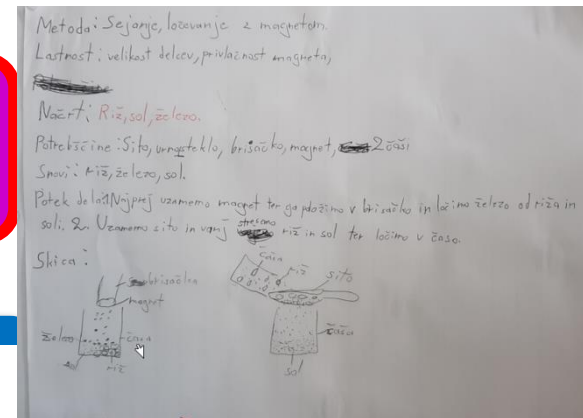 Metoda: Sejanje, ločevanje z magnetom.
Lastnost: velikost delcev, privlačnost magneta,
Načrt: Riž, sol, železo.
Potrebščine: Sito, urno steklo, brisačko, magnet, 2 čaši
Snovi: riž, železo, sol.
Potek dela: 1. Najprej vzamemo magnet ter ga položimo v brisačko in ločimo železo od riža in
soli. 2. Vzamemo sito in vanj stresemo riž in sol ter ločimo v čašo.
Skica:
brisačka
magnet
železo
čaša
sol
riž
čaša
riž
sito
čaša
sol